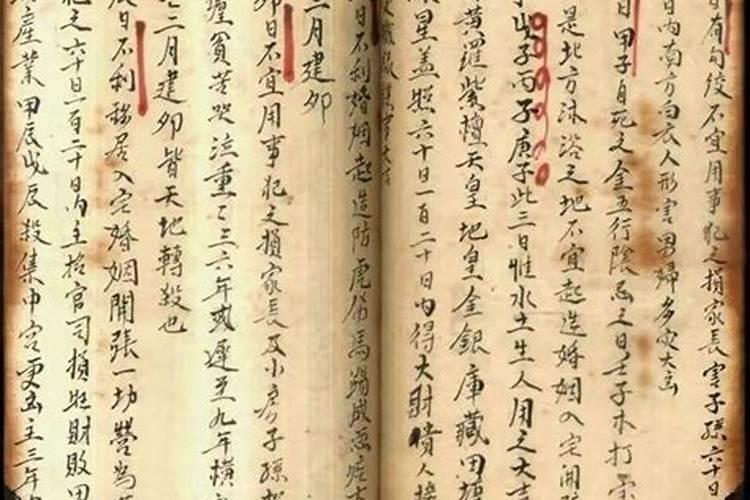 日有勾绞不宜用事犯之損家長害子孫六十日
日内南方白衣人形害男婦多灾大凶
日甲子自死之金五行陰忌之日壬子木打
是北方沐浴之地不宜起造婚姻入宅開
戊子丙子庚子此三日惟水土生人用之大吉
黄羅紫檀天皇地皇金銀庫藏田塘
星盖照六十日一百二十日内得大財貴人接
日不利婚姻起造防虎傷馬踢成惡疾
二月建卯
卯日不宜用事犯之損家長及小房子孫
瘟貧苦哭泣重重三六年或遲至九年横
二月建卯皆天地轉殺也
日不利移居入宅婚姻開張一切營為
犯之六十日一百二十日内主招官司損照財敗田
産業甲辰戊辰殺集中宫更凶主三年